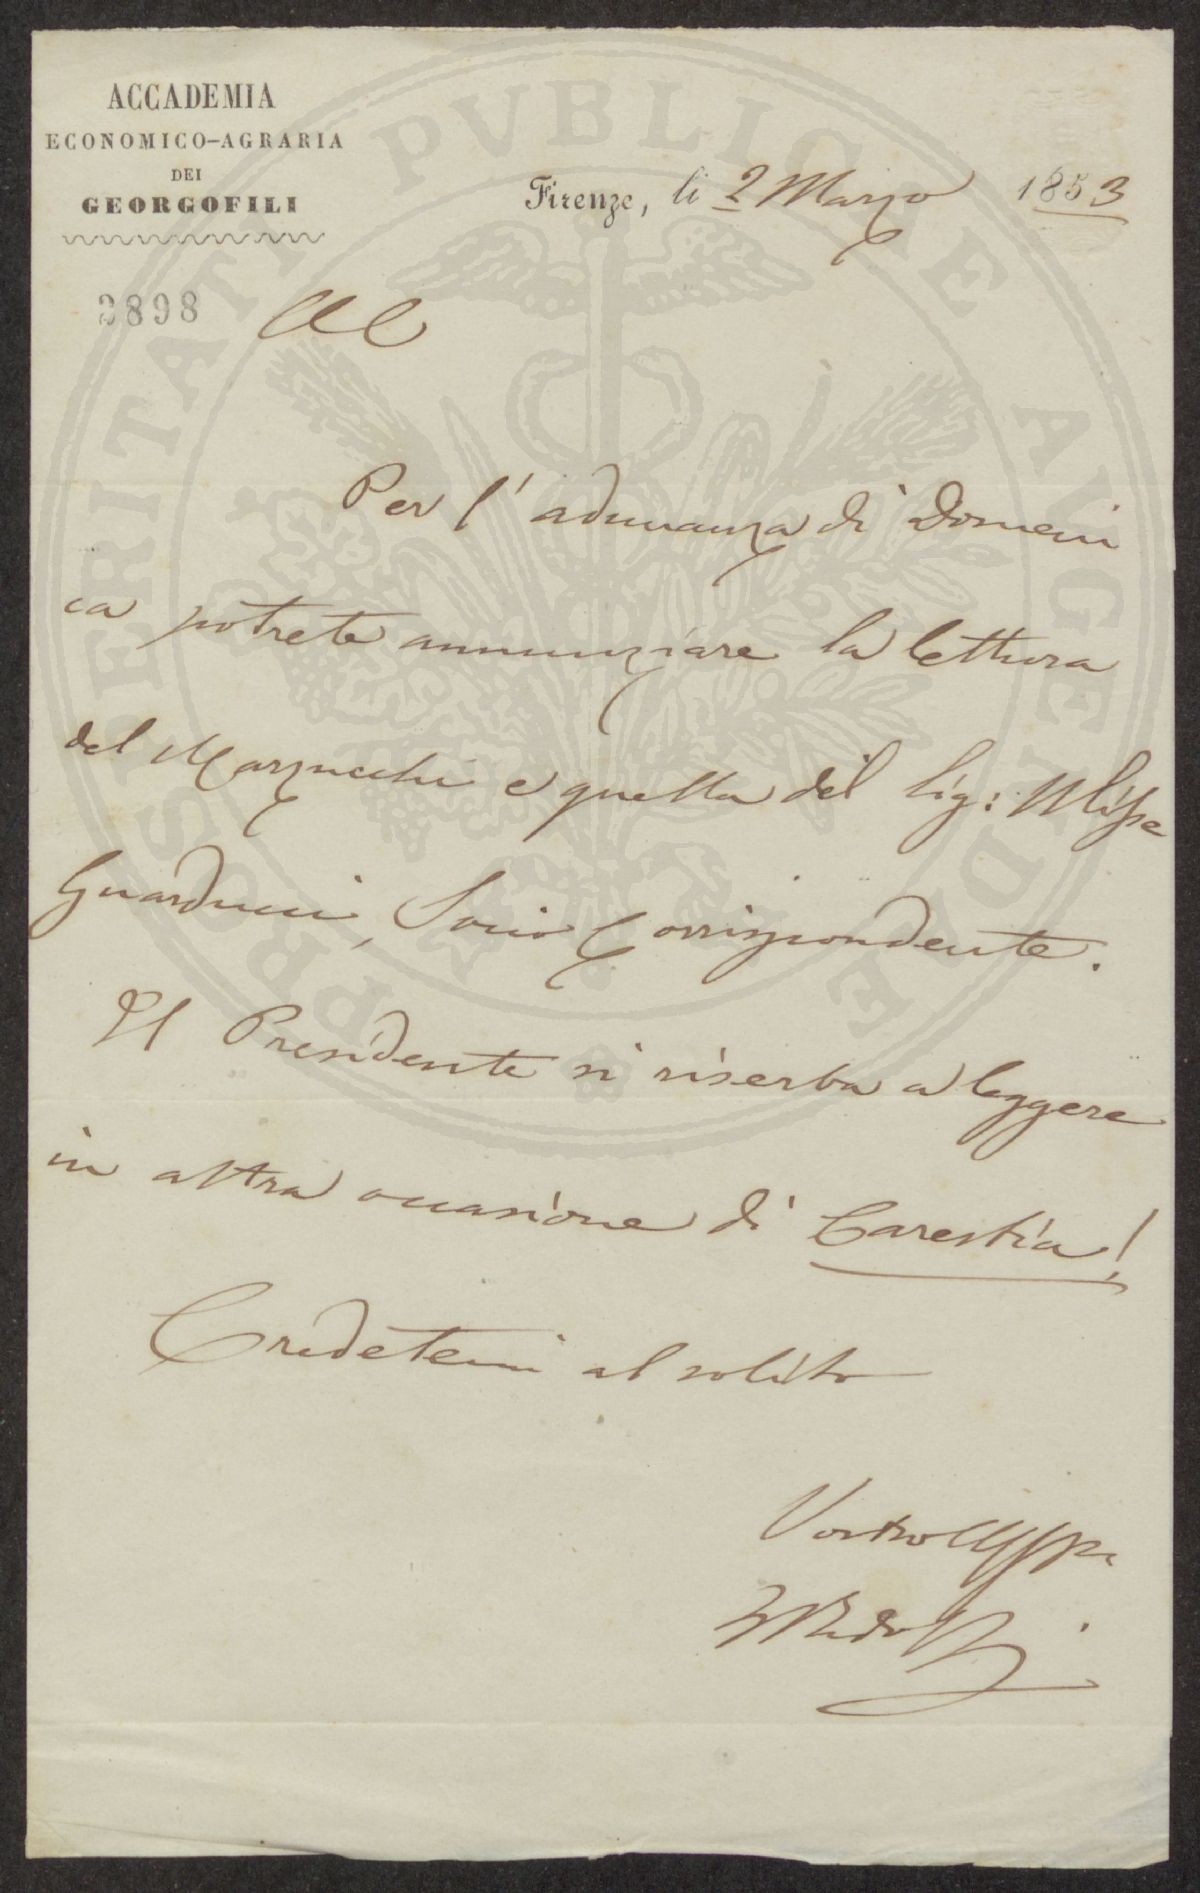 ACCADEMIA
ECONOMICO-AGRARIA
DEI
GEORGOFILI
Firenze, li 2 Marzo 1853
2898
AC
Per l'adunanza di Domeni
ca potrete annunziare la lettura
del Marzucchi e quella del Sig: Ulisse
Guarducci, Socio Corrispondente.
Il Presidente si riserba a leggere
in altra occasione di Carestia!
Credetemi al solito
Vostro Affe
PROSPERITATI PVBLICAE AVGENDAE